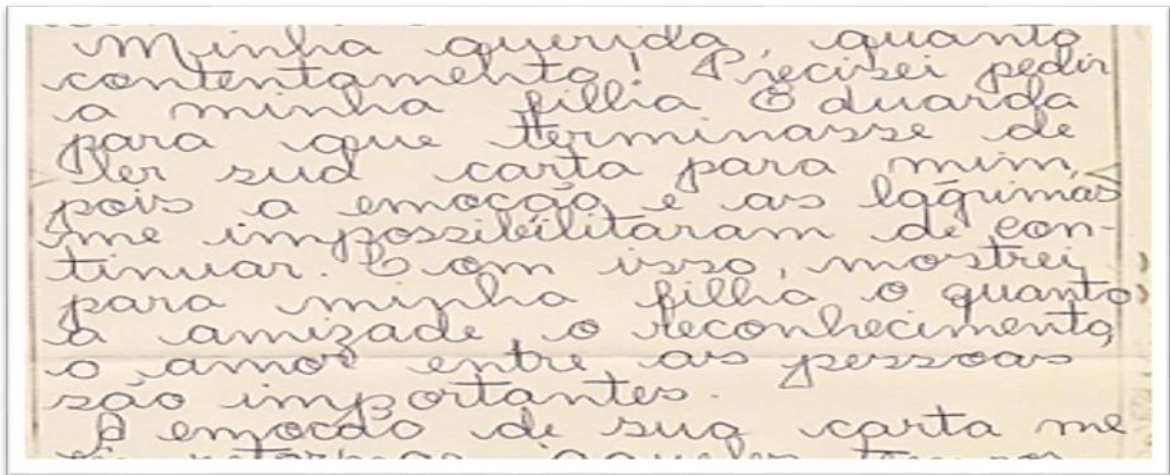 Minha querida, quanto
contentamento! Precisei pedir
a minha filha Eduarda
para que terminasse de
ler sua carta para mim,
pois a emoção e as lágrimas
me impossibilitaram de con-
tinuar. Com isso, mostrei
para minha filha o quanto
a amizade o reconhecimento,
o amor entre as pessoas
são importantes.
A emoção de sua carta me